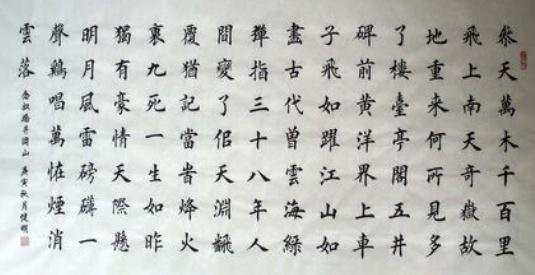 參天萬木千百里
飛上南天奇嶽故
地重来何所見多
了樓臺亭閣五井
碑前黄洋界上車
子飛如躍江山如
畫古代曾雲海緑
彈指三十八年人
間變了佀天淵飜
覆猶記當旹烽火
裏九死一生如昨
獨有豪情天際懸
明月風雷磅礴一
聲鷄唱萬恠煙消
雲落
念奴嬌井岡山 庚寅秋月健明